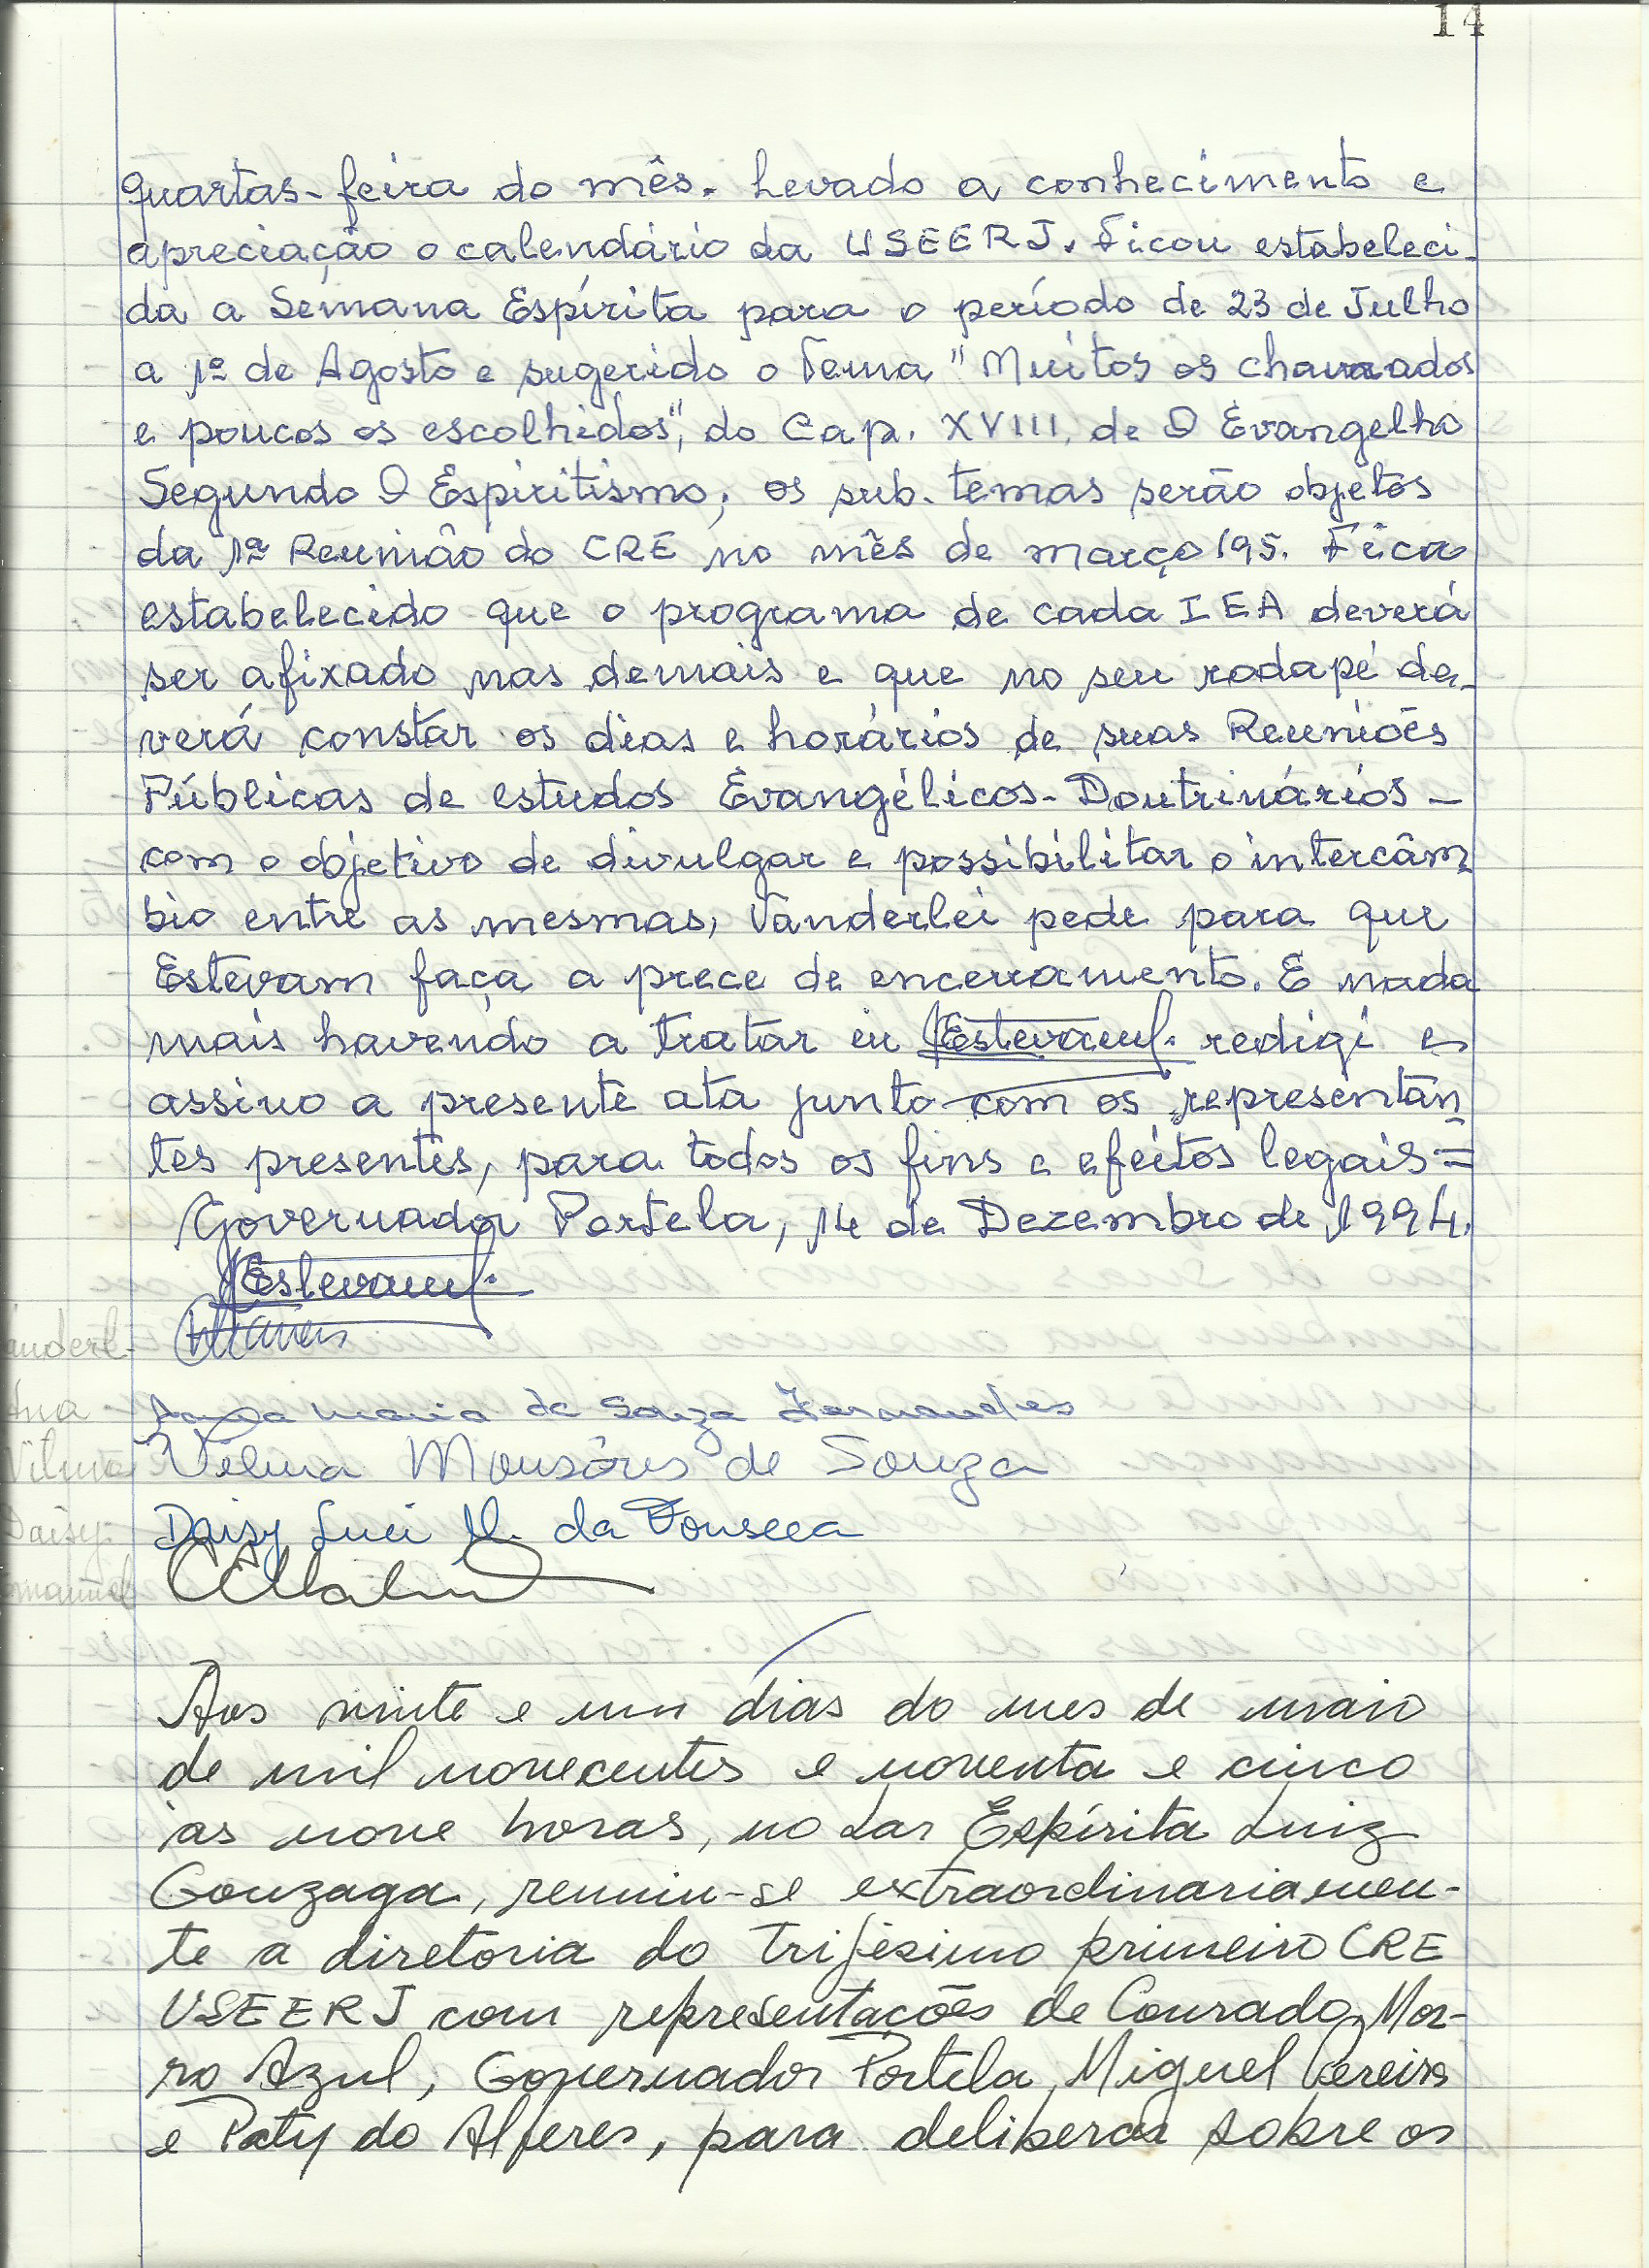 14
quartas-feira do mês. Levado a conhecimento e
apreciação o calendário da USEERJ. Ficou estabeleci-
da a Semana Espírita para o período de 23 de Julho
a 1º de Agosto e sugerido o Tema "Muitos os chamados
e poucos os escolhidos", do Cap. XVIII, de O Evangelho
Segundo O Espiritismo; os sub-temas serão objetos
da 1ª Reunião do CRE no mês de março/95. Fica
estabelecido que o programa de cada IEA deverá
ser afixado nas demais e que no seu rodapé de-
verá constar os dias e horários de suas Reuniões
Públicas de estudos Evangélicos-Doutrinários -
com o objetivo de divulgar e possibilitar o intercâm
bio entre as mesmas, Vanderlei pede para que
Estevam faça a prece de encerramento. E nada
mais havendo a tratar eu Estevam redigi e
assino a presente ata junto com os representan
tes presentes, para todos os fins e efeitos legais =
Governador Portela, 14 de Dezembro de 1994.
Estevam
anderl-
Ana - Maria de Souza Fernandes
Vilma Vilma Monsôres de Souza
Daisy: Daisy Luci M. da Fonseca
manuel
Aos vinte e um dias do mes de maio
de mil novecentos e noventa e cinco
às nove horas, no Lar Espírita Luiz
Gonzaga, reuniu-se extraordinariamen-
te a diretoria do trijésimo primeiro CRE
USEERJ com representações de Conrado, Mor-
ro Azul, Governador Portela, Miguel Pereira
e Paty do Alferes, para deliberar sobre os